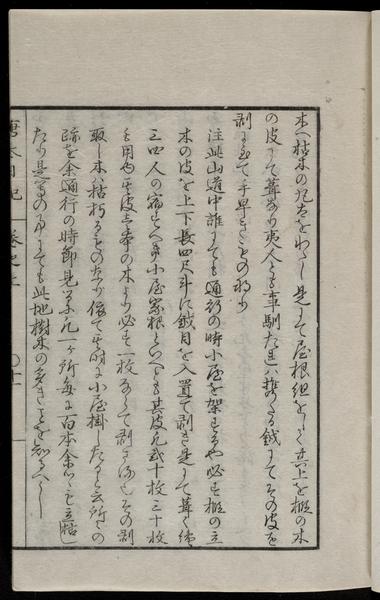 木へ枯木の九太をわたし是にて屋根組をして其上を椴の木
の皮にて葺なり夷人とも事馴た里ハ携へたる鉞にてその皮を
剥にいと手早きものなり
注並山道中誰にても通行の時小屋を架するや必す椴の立
木の皮を上下長四尺斗に鉞目を入置て剥き是にて葺く
三四人の宿すへき小屋家根といへとも其皮凡弐十枚三十枚
も用ゆ其皮壱本の木より必す一枚ならて剥さる也その剥
取し木ハ枯朽るものなり依て其時に小屋掛したりと云所の
跡を余通行の時節見るに凡一ヶ所毎に百本余ツヽも立枯し
たり是等の事にても此地樹木の多きことを知るへし
唐太日記 巻之上